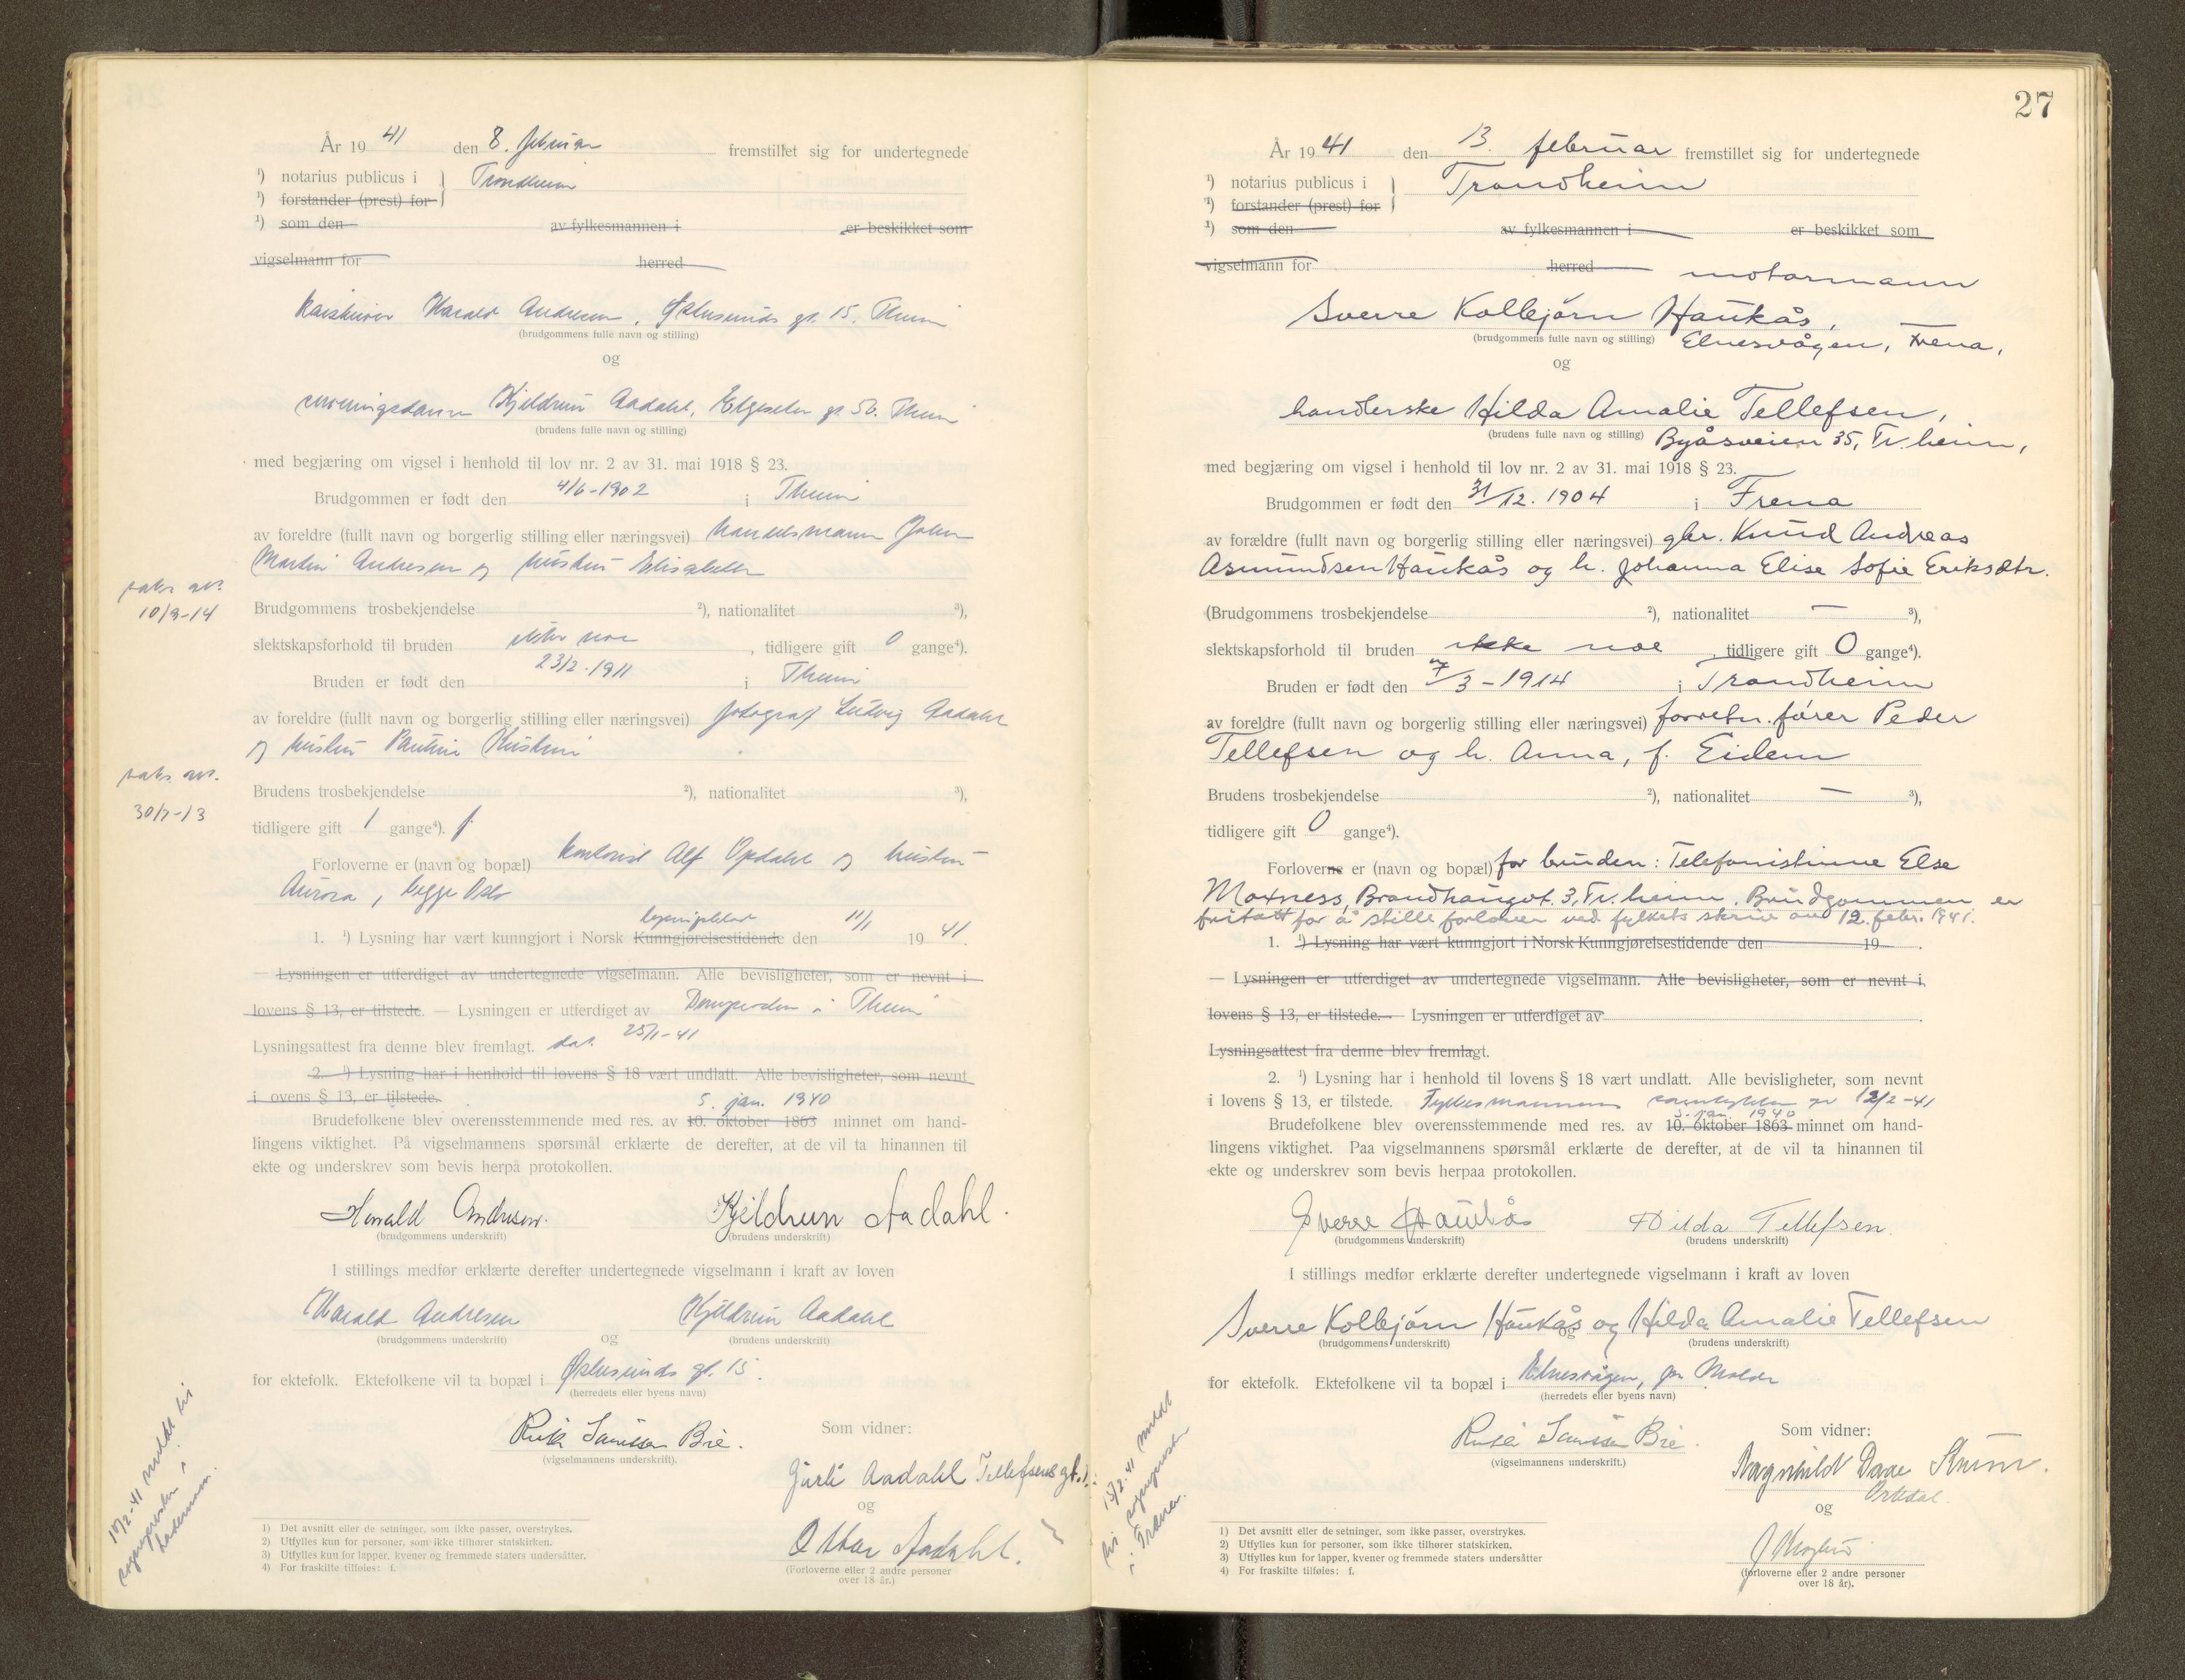 År 19 41 den 8. februar fremstillet sig for undertegnede
¹) notarius publicus i } Trondheim
¹) forstander (prest) for
¹) som den av fylkesmannen i er beskikket som
vigselmann for herred
Harald Andresen, gt. 15. Theim
(brudgommens fulle navn og stilling)
og
serveringsdame Kjeldrun Aadahl, Elgeseter gt. Theim
(brudens fulle navn og stilling)
med begjæring om vigsel i henhold til lov nr. 2 av 31. mai 1918 § 23.
Brudgommen er født den 4/6-1902 i Theim
av foreldre (fullt navn og borgerlig stilling eller næringsvei) handelsmann John
Martin Andresen og hustru Elisabeth
vaks. att.
10/9-14
Brudgommens trosbekjendelse ²), nationalitet ³),
slektskapsforhold til bruden ikke noe, tidligere gift 0 gange⁴).
Bruden er født den 23/2-1911 i Theim
av foreldre (fullt navn og borgerlig stilling eller næringsvei) fotograf Ludvig Aadahl
og hustru Pauline Kristine
vaks. att.
30/7-13
Brudens trosbekjendelse ²), nationalitet ³),
tidligere gift 1 gange⁴). f.
Forloverne er (navn og bopæl) kontorist Alf Opdahl og hustru
Aurora, begge Oslo
1. ¹) Lysning har vært kunngjort i Norsk Kunngjørelsestidende lysingsblad den 11/1 19 41.
— Lysningen er utferdiget av undertegnede vigselmann. Alle bevisligheter, som er nevnt i
lovens § 13, er tilstede. — Lysningen er utferdiget av Domprosten i Theim
Lysningsattest fra denne blev fremlagt. dat. 25/1-41
2. ¹) Lysning har i henhold til lovens § 18 vært undlatt. Alle bevisligheter, som nevnt
i ovens § 13, er tilstede.
5. jan. 1940
Brudefolkene blev overensstemmende med res. av 10. oktober 1863 minnet om hand-
lingens viktighet. På vigselmannens spørsmål erklærte de derefter, at de vil ta hinannen til
ekte og underskrev som bevis herpå protokollen.
Harald Andresen. Kjeldrun Aadahl.
(brudgommens underskrift) (brudens underskrift)
I stillings medfør erklærte derefter undertegnede vigselmann i kraft av loven
Harald Andresen og Kjeldrun Aadahl
(brudgommens underskrift) (brudens underskrift)
for ektefolk. Ektefolkene vil ta bopæl i gt. 15.
(herredets eller byens navn)
Som vidner:
Bie.
(vigselmannens underskrift).
Gurli Aadahl Tellefsens gt. 1.
og
Ottar Aadahl.
(Forloverne eller 2 andre personer
over 18 år.)
meldt til
sogneprest i
Lademoen.
1) Det avsnitt eller de setninger, som ikke passer, overstrykes.
2) Utfylles kun for personer, som ikke tilhører statskirken.
3) Utfylles kun for lapper, kvener og fremmede staters undersåtter.
4) For fraskilte tilføies: f.
27
År 19 41 den 13. februar fremstillet sig for undertegnede
¹) notarius publicus i } Trondheim
¹) forstander (prest) for
¹) som den av fylkesmannen i er beskikket som
vigselmann for herred
motormann
Sverre Kolbjörn Haukås,
(brudgommens fulle navn og stilling) Elnesvågen, Fræna,
og
handlerske Hilda Amalie Tellefsen,
(brudens fulle navn og stilling) Byåsveien 35, Tr.heim,
med begjæring om vigsel i henhold til lov nr. 2 av 31. mai 1918 § 23.
Brudgommen er født den 31/12. 1904 i Frena
av forældre (fullt navn og borgerlig stilling eller næringsvei) gbr. Knud Andreas
Asmundsen Haukås og h. Johanna Elise Sofie Eriksdtr.
(Brudgommens trosbekjendelse ²), nationalitet — ³),
slektskapsforhold til bruden ikke noe, tidligere gift 0 gange⁴).
Bruden er født den 7/3-1914 i Trondheim
av foreldre (fullt navn og borgerlig stilling eller næringsvei) forretn.fører Peder
Tellefsen og h. Anna, f. Eidem
Brudens trosbekjendelse ²), nationalitet — ³),
tidligere gift 0 gange⁴).
Forloverne er (navn og bopæl) for bruden: Telefonistinne Else
Moxness, Brandhaugvt. 3, Tr.heim. Brudgommen er
fritatt for å stille forlover ved fylkets skriv av 12. febr. 1941.
1. ¹) Lysning har vært kunngjort i Norsk Kunngjørelsestidende den 19 .
— Lysningen er utferdiget av undertegnede vigselmann. Alle bevisligheter, som er nevnt i
lovens § 13, er tilstede. — Lysningen er utferdiget av .
Lysningsattest fra denne blev fremlagt.
2. ¹) Lysning har i henhold til lovens § 18 vært undlatt. Alle bevisligheter, som nevnt
i lovens § 13, er tilstede. Fylkesmannens samtykke av 12/2-41
5. jan. 1940
Brudefolkene blev overensstemmende med res. av 10. oktober 1863 minnet om hand-
lingens viktighet. Paa vigselmannens spørsmål erklærte de derefter, at de vil ta hinannen til
ekte og underskrev som bevis herpaa protokollen.
Sverre Haukås Hilda Tellefsen.
(brudgommens underskrift) (brudens underskrift)
I stillings medfør erklærte derefter undertegnede vigselmann i kraft av loven
Sverre Kolbjörn Haukås og Hilda Amalie Tellefsen
(brudgommens underskrift) og (brudens underskrift)
for ektefolk. Ektefolkene vil ta bopæl i Elnesvågen, pr Molde
(herredets eller byens navn)
Som vidner:
Bie.
(vigselmannens underskrift.)
Ragnhild
Orkdal.
og
(forloverne eller 2 andre personer
over 18 år).
meldt
til sogneprest
i Fræna.
1) Det avsnitt eller de setninger, som ikke passer, overstrykes.
2) Utfylles kun for personer, som ikke tilhører statskirken.
3) Utfylles kun for lapper, kvener og fremmede staters undersåtter
4) For fraskilte tilføies: f.